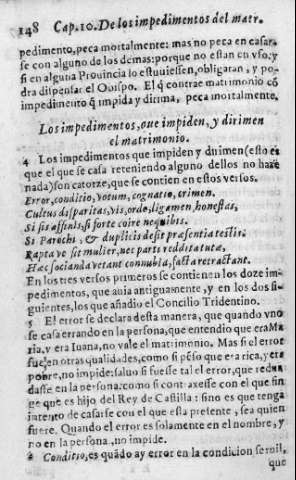 148 Cap. 10. De los impedimentos del matr.
pedimento, peca mortalmente: mas no peca en casar-
se con alguno de los demas: porque no estan en vso, y
si en alguna Prouincia lo estuuiessen, obligaran, y po-
dra dispensar el Ouispo. El q̃ contrae matrimonio cõ
impedimento q̃ impida y dirima, peca mortalmente.
Los impedimentos, que impiden, y dirimen
el matrimonio.
4 Los impedimentos que impiden y dirimen (esto es
que el que se casa teteniendo alguno dellos no haze
nada) son catorze, que se contien en estos versos.
Error, conditio, votum, cognatio, crimen.
Cultus disparitas, vis, ordo, ligamen, honestas,
Si sis affinis, si forte coire nequibis.
Si Parochi, & duplicis desit præsentia testis.
Rapta ve sit mulier, nec parti reddita tutæ,
Hæc socianda vetant connubia, facta retractant.
En los tres versos primeros se contienen los doze im-
pedimentos, que auia antiguamente, y en los dos si-
guientes, los que añadio el Concilio Tridentino.
5 El error se declara desta manera, que quando vno
se casa errando en la persona, que entendio que era Ma
ria, y era Iuana, no vale el matrimonio. Mas si el error
fue en otras qualidades, como si pẽso que era rica, y era
pobre, no impide: saluo si fuesse tal el error, que redun-
dasse en la persona: como si contraxesse con el que fin
ge que es hijo del Rey de Castilla: sino es que tenga
intento de casarse con el que esta presente, sea quien
fuere. Quando el error es solamente en el nombre, y
no en la persona, no impide.
6 Conditio, es quãdo ay error en la condicion seruil,
que